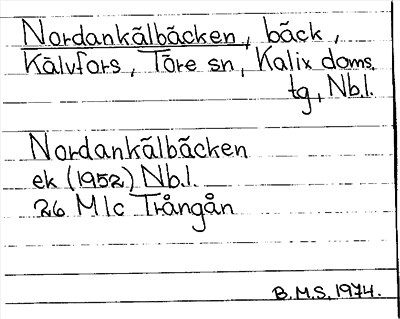 Nordankälbäcken, bäck,
Kälvfors, Töre sn, Kalix doms.
tg, Nb.l.
Nordankälbäcken
ek (1952) Nb.l.
26 M 1c Trångån
B.M.S. 1974.